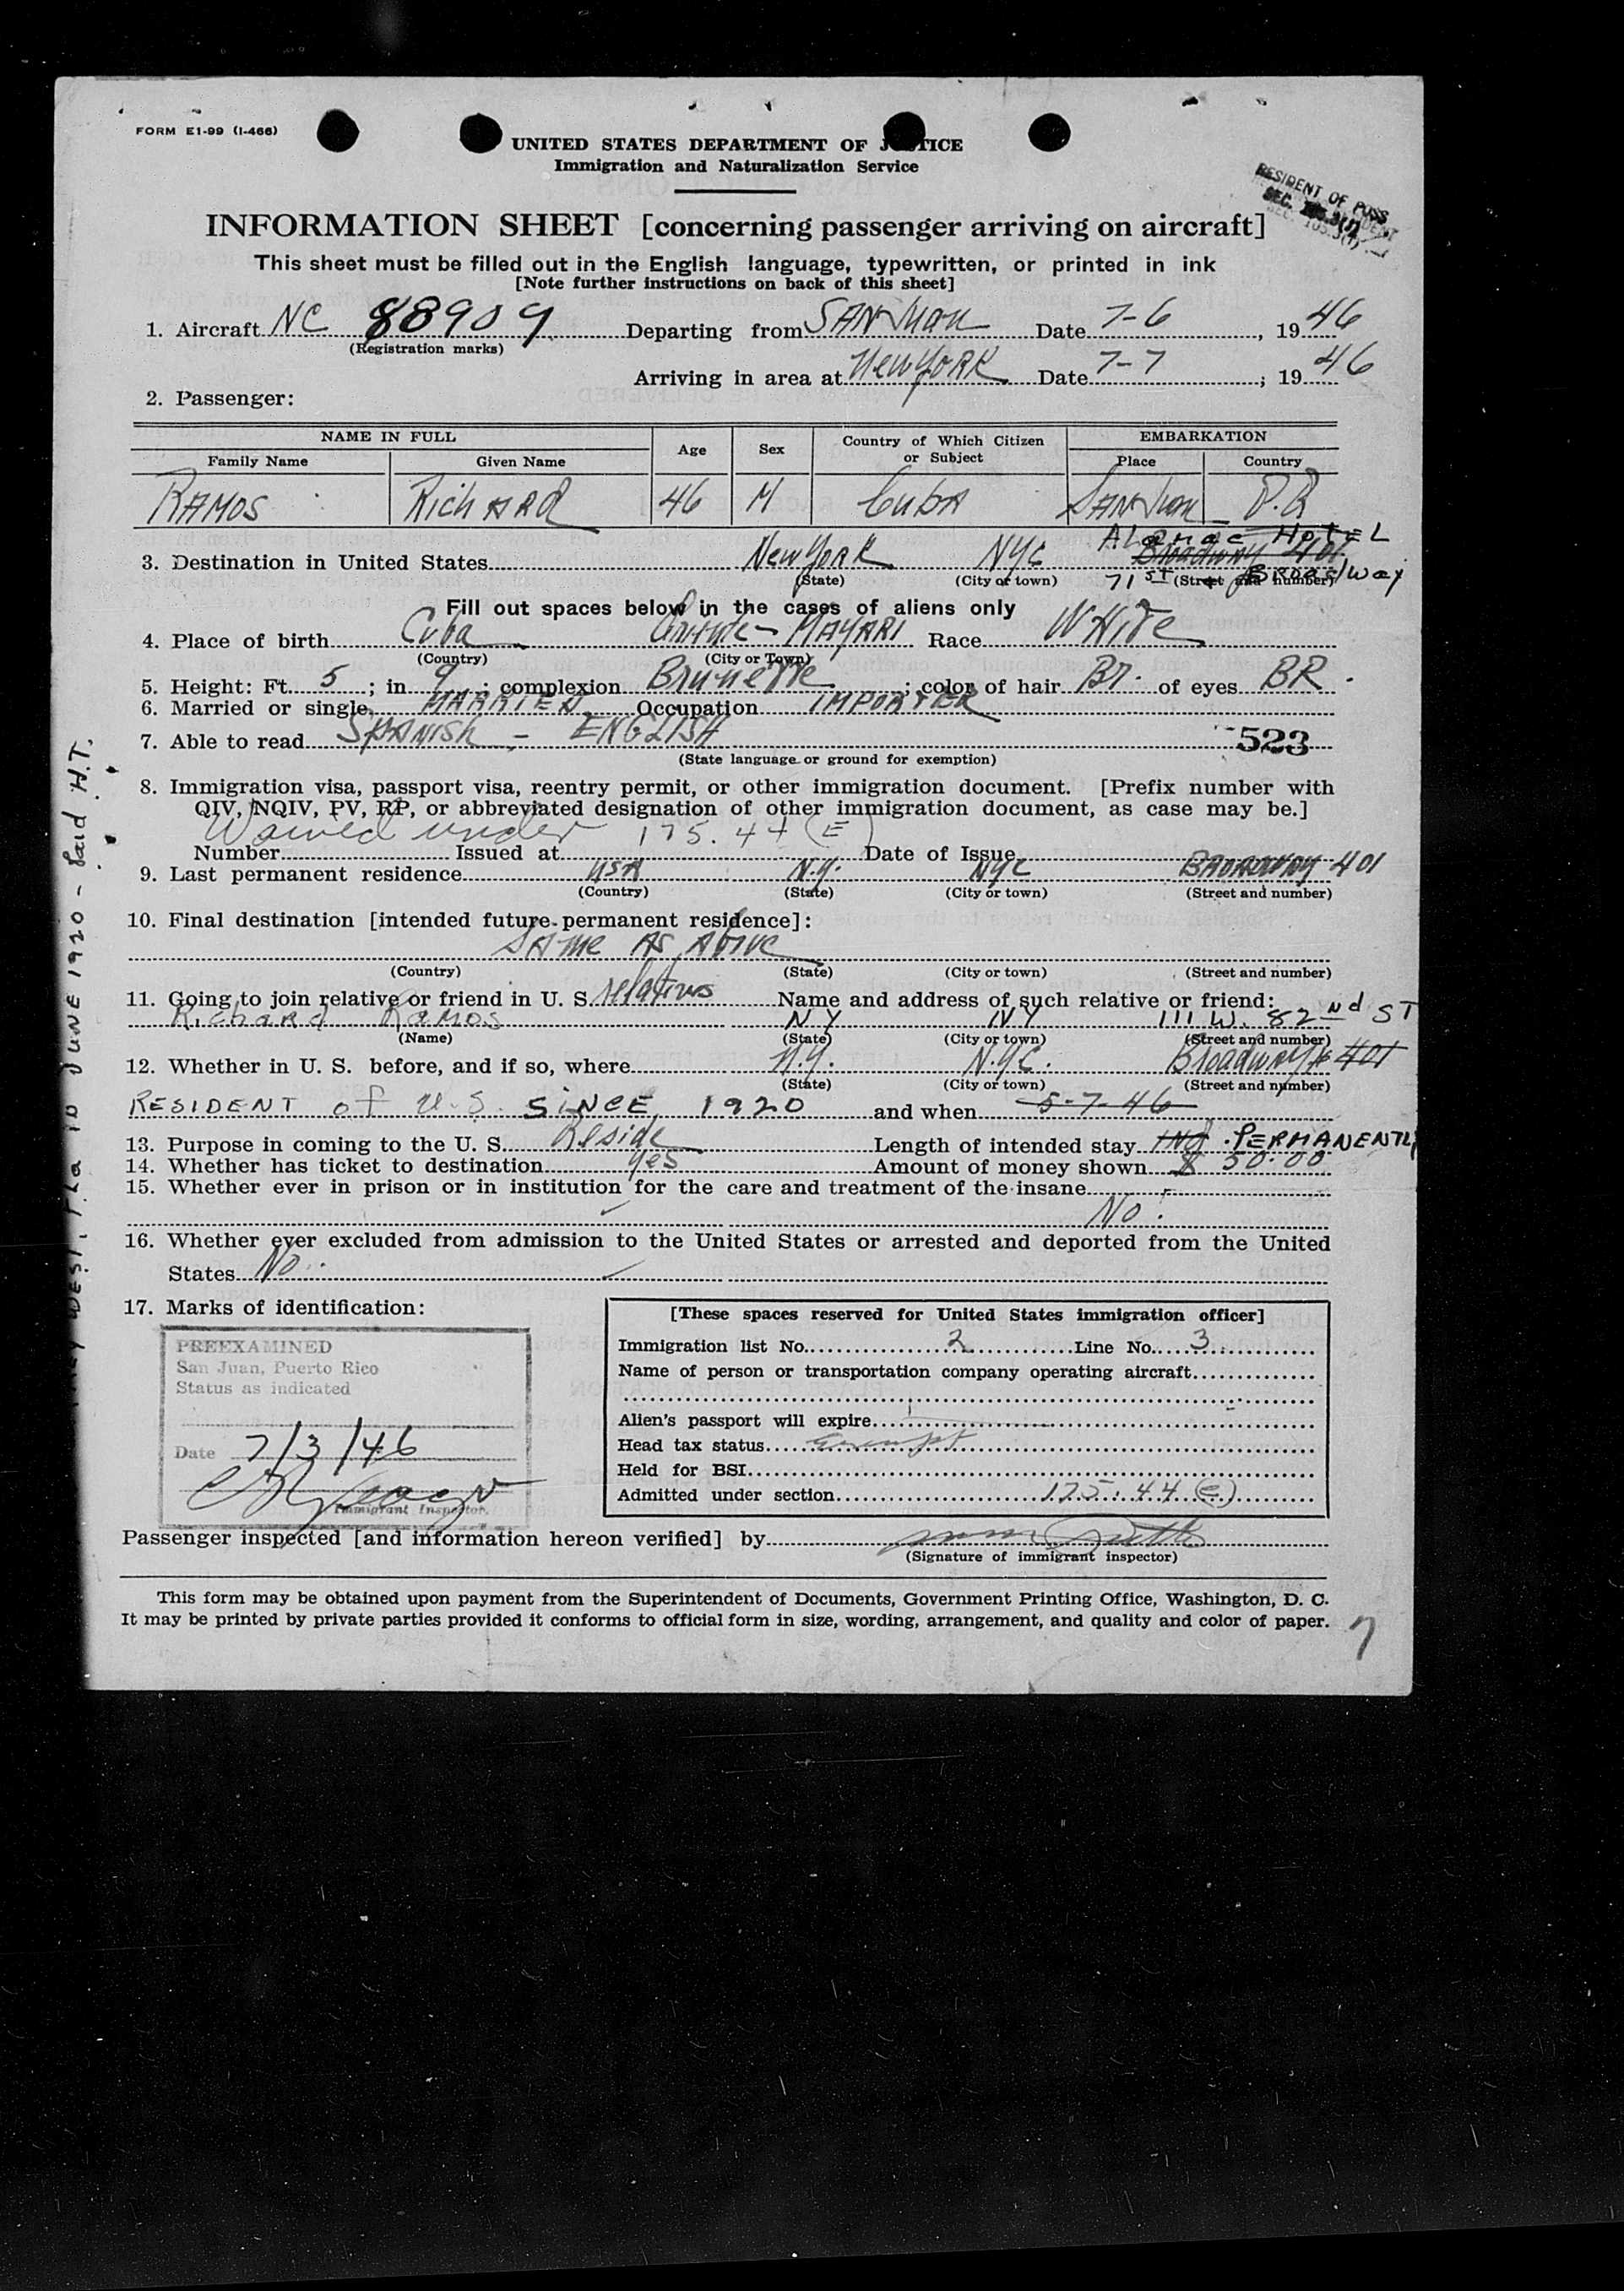 FORM E1-99 (I-466)
UNITED STATES DEPARTMENT OF JUSTICE
Immigration and Naturalization Service
RESIDENT OF POSS
SEC.
INFORMATION SHEET [concerning passenger arriving on aircraft]
This sheet must be filled out in the English language, typewritten, or printed in ink
[Note further instructions on back of this sheet]
1. Aircraft NC 88909 Departing from SAN Juan Date 7-6, 1946
(Registration marks)
Arriving in area at New YORK Date 7-7; 1946
2. Passenger:
NAME IN FULL Age Sex Country of Which Citizen or Subject EMBARKATION
Family Name Given Name Place Country
RAMOS RichARd 46 M CubA SAN Juan P.R
Alamac HOTEL
3. Destination in United States New YORK NYC Broadway 401
(State) (City or town) (Street and number)
71ST Broadway
Fill out spaces below in the cases of aliens only
4. Place of birth Cuba Oriente - MAYARI Race WHITE
(Country) (City or Town)
5. Height: Ft. 5; in 9; complexion Brunette; color of hair Br. of eyes BR.
6. Married or single MARRIED Occupation IMPORTER
7. Able to read SPANISH - ENGLISH 523
(State language or ground for exemption)
8. Immigration visa, passport visa, reentry permit, or other immigration document. [Prefix number with
QIV, NQIV, PV, RP, or abbreviated designation of other immigration document, as case may be.]
Waived under 175.44 (E)
Number Issued at Date of Issue
9. Last permanent residence USA N.Y. NYC BROADWAY 401
(Country) (State) (City or town) (Street and number)
10. Final destination [intended future permanent residence]:
SAme AS Above
(Country) (State) (City or town) (Street and number)
11. Going to join relative or friend in U. S. relatives Name and address of such relative or friend:
Richard Ramos NY NY 111 W. 82nd ST
(Name) (State) (City or town) (Street and number)
12. Whether in U. S. before, and if so, where N.Y. N.Y.C. Broadway 401
(State) (City or town) (Street and number)
RESIDENT of U.S. SINCE 1920 and when 5-7-46
13. Purpose in coming to the U. S. Reside Length of intended stay Ind. PERMANENTLY
14. Whether has ticket to destination yes Amount of money shown $ 50.00
15. Whether ever in prison or in institution for the care and treatment of the insane
No.
16. Whether ever excluded from admission to the United States or arrested and deported from the United
States No.
17. Marks of identification:
PREEXAMINED
San Juan, Puerto Rico
Status as indicated
Date 7/3/46
Immigrant Inspector.
[These spaces reserved for United States immigration officer]
Immigration list No. 2 Line No. 3
Name of person or transportation company operating aircraft
Alien's passport will expire
Head tax status Exempt
Held for BSI
Admitted under section 175.44 (e)
Passenger inspected [and information hereon verified] by
(Signature of immigrant inspector)
This form may be obtained upon payment from the Superintendent of Documents, Government Printing Office, Washington, D. C.
It may be printed by private parties provided it conforms to official form in size, wording, arrangement, and quality and color of paper.
7
KEY WEST, FLA in JUNE 1920 - Paid H.T.